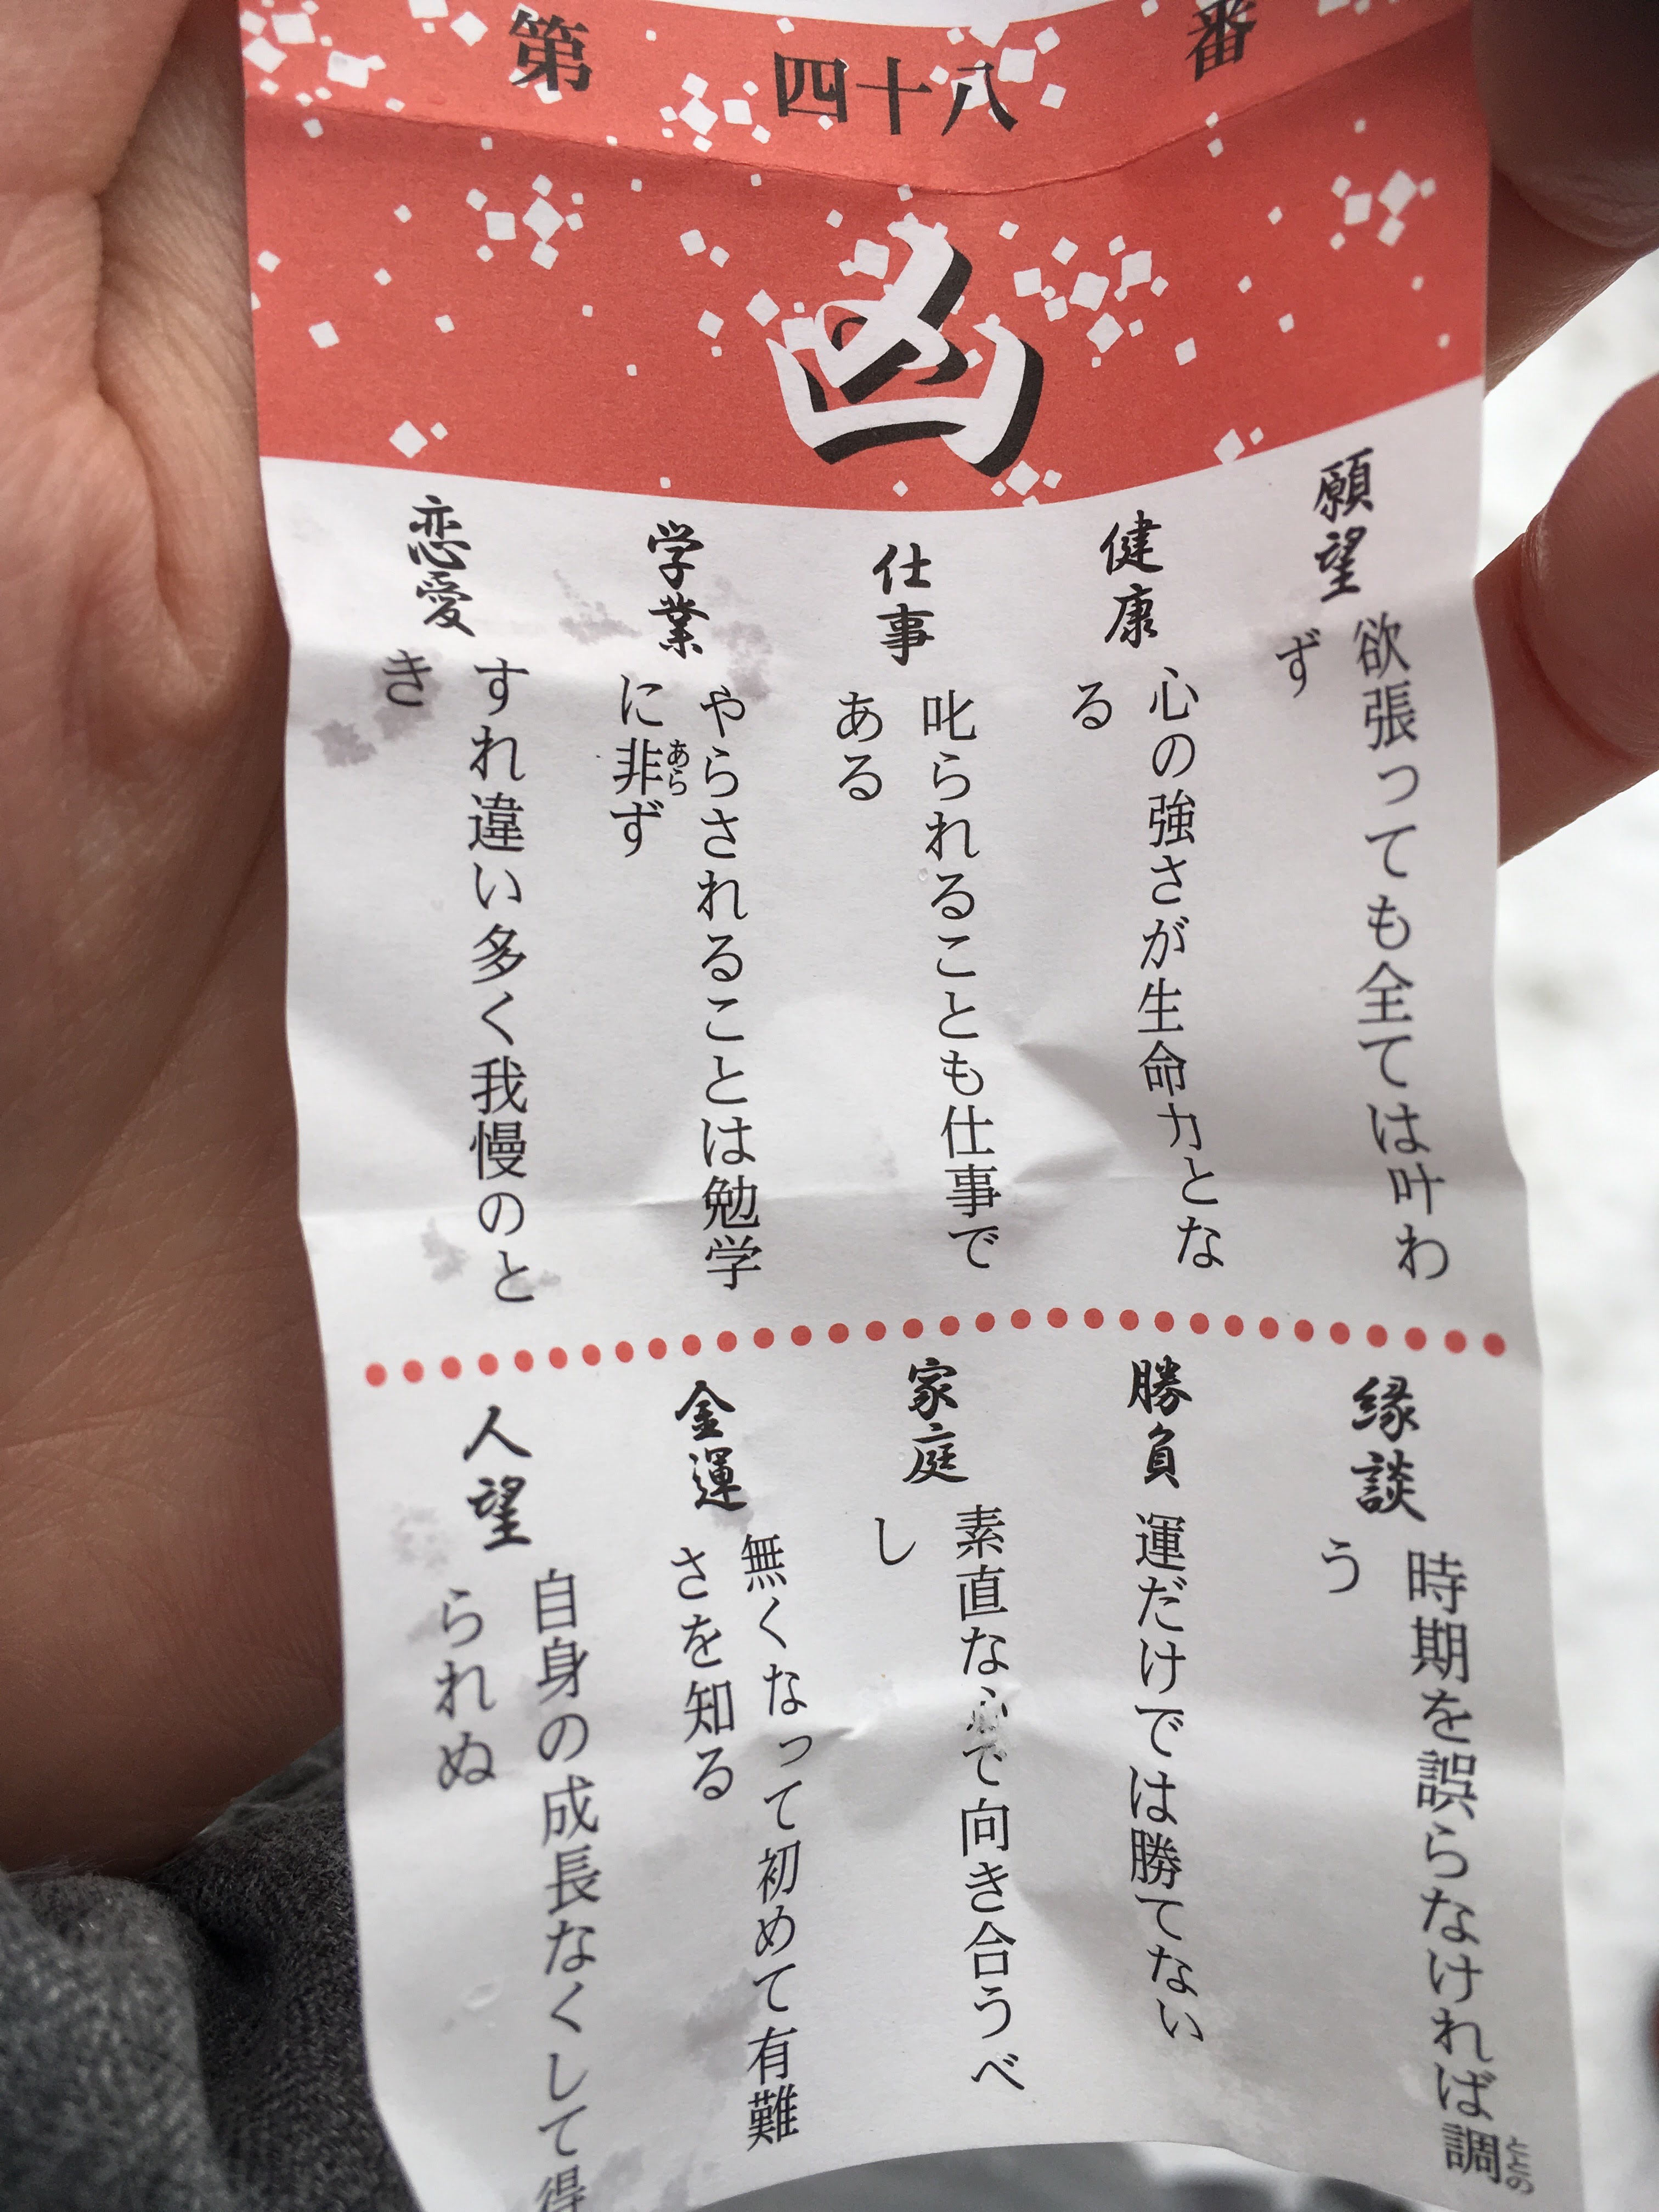 第四十八番
凶
願望
欲張っても全ては叶わ
ず
健康
心の強さが生命力とな
る
仕事
叱られることも仕事で
ある
学業
やらされることは勉学
に非ず
あら
恋愛
すれ違い多く我慢のと
き
縁談
時期を誤らなければ調
ととの
う
勝負
運だけでは勝てない
家庭
素直な心で向き合うべ
し
金運
無くなって初めて有難
さを知る
人望
自身の成長なくして得
られぬ